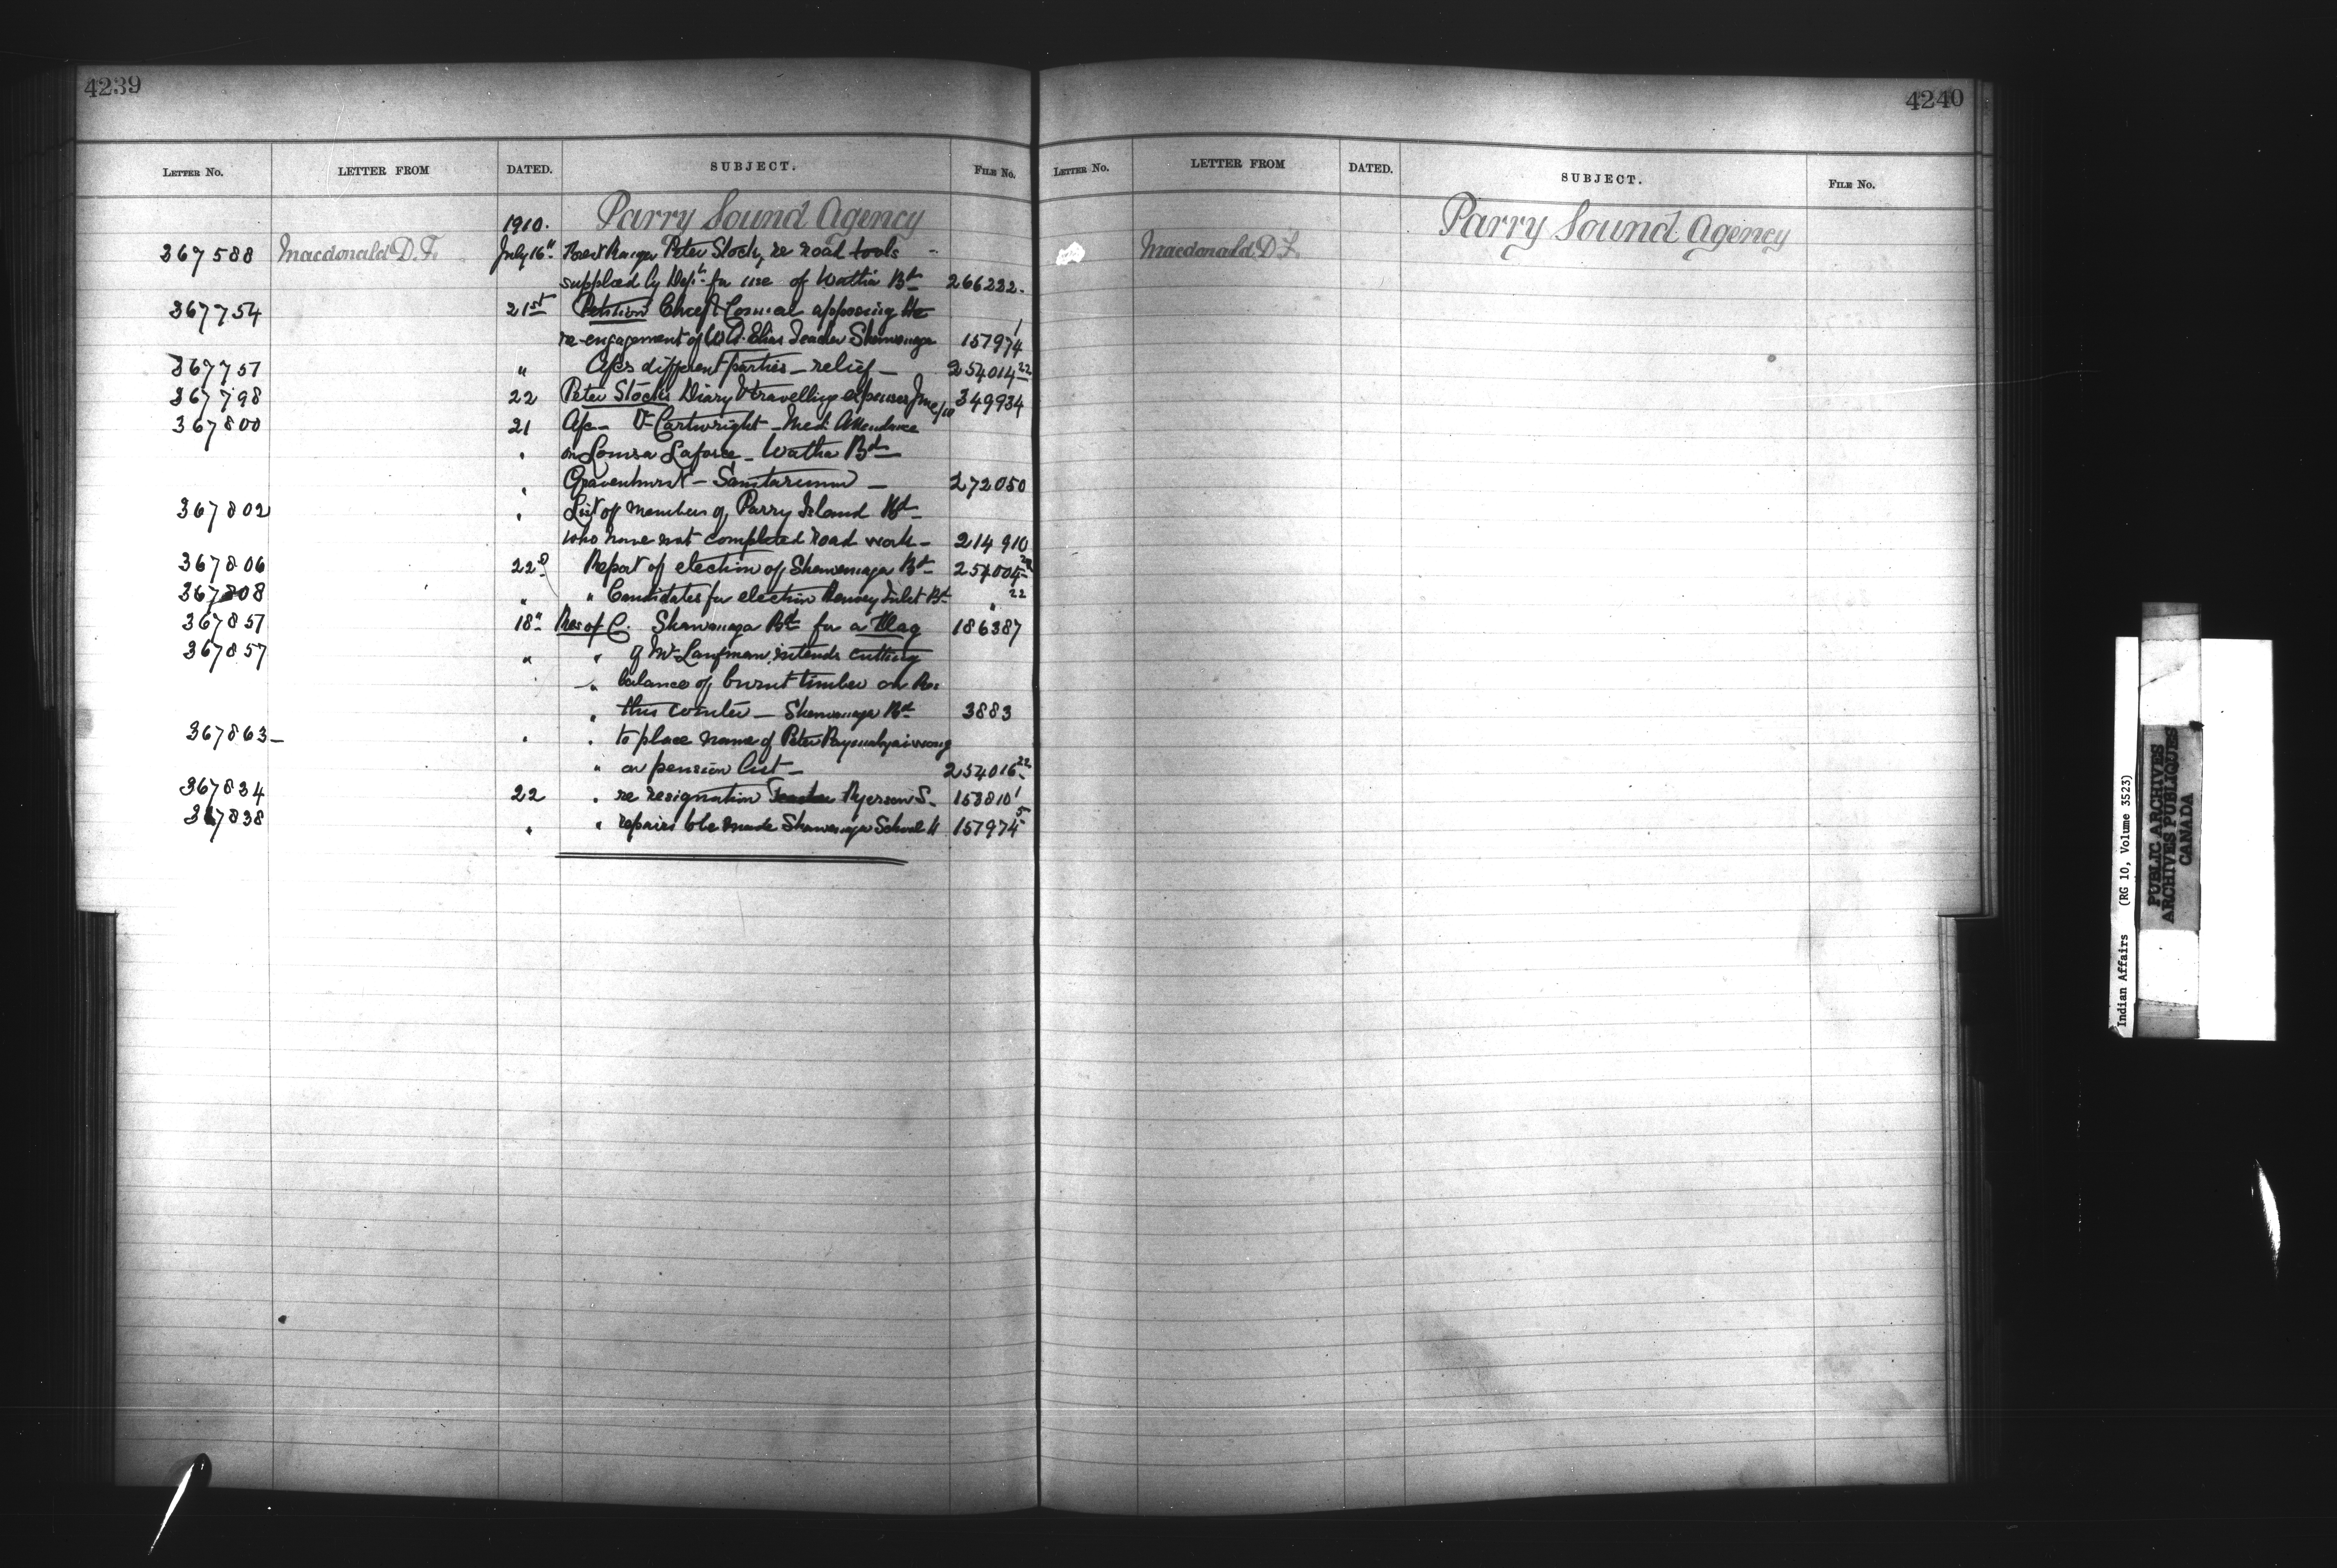 4239
LETTER NO. LETTER FROM DATED. SUBJECT. FILE NO.
1910. Parry Sound Agency
367588 Macdonald D. F. July 16" Forest Ranger Peter Stock, re road tools
supplied by Dept. for use of Watha Bd 266232.
367754 21st Petition Chief & Council opposing the
re-engagement of Elias Teacher Shawanaga 157974 1
367757 " A/cs different parties - relief - 254014 22
367798 22 Peter Stock's Diary & travelling expenses June/10 349934
367800 21 A/c - Dr Cartwright - Med. Attendance
" on Louisa Laforce - Watha Bd
" Gravenhurst - Sanitarium - 272050
367802 " List of members of Parry Island Bd
who have not completed road work - 214910
367806 22d Report of election of Shawanaga Bd 254004 22
367808 " " Candidates for election Henvey Inlet Bd " 22
367857 18" Res of C. Shawanaga Bd for a Flag 186387
367857 " " Mr intends cutting
" balance of burnt timber on Res
" this - Shawanaga Bd 3883
367863 - " " to place name of Peter
" on pension list - 254016 22
367834 22 " re resignation Teacher Ryerson S. 153810 1
367838 " " repairs to be made Shawanaga School H 157974 5
4240
LETTER NO. LETTER FROM DATED. SUBJECT. FILE NO.
Parry Sound Agency
Macdonald D. F.
Indian Affairs (RG 10, Volume 3523)
PUBLIC ARCHIVES
ARCHIVES PUBLIQUES
CANADA